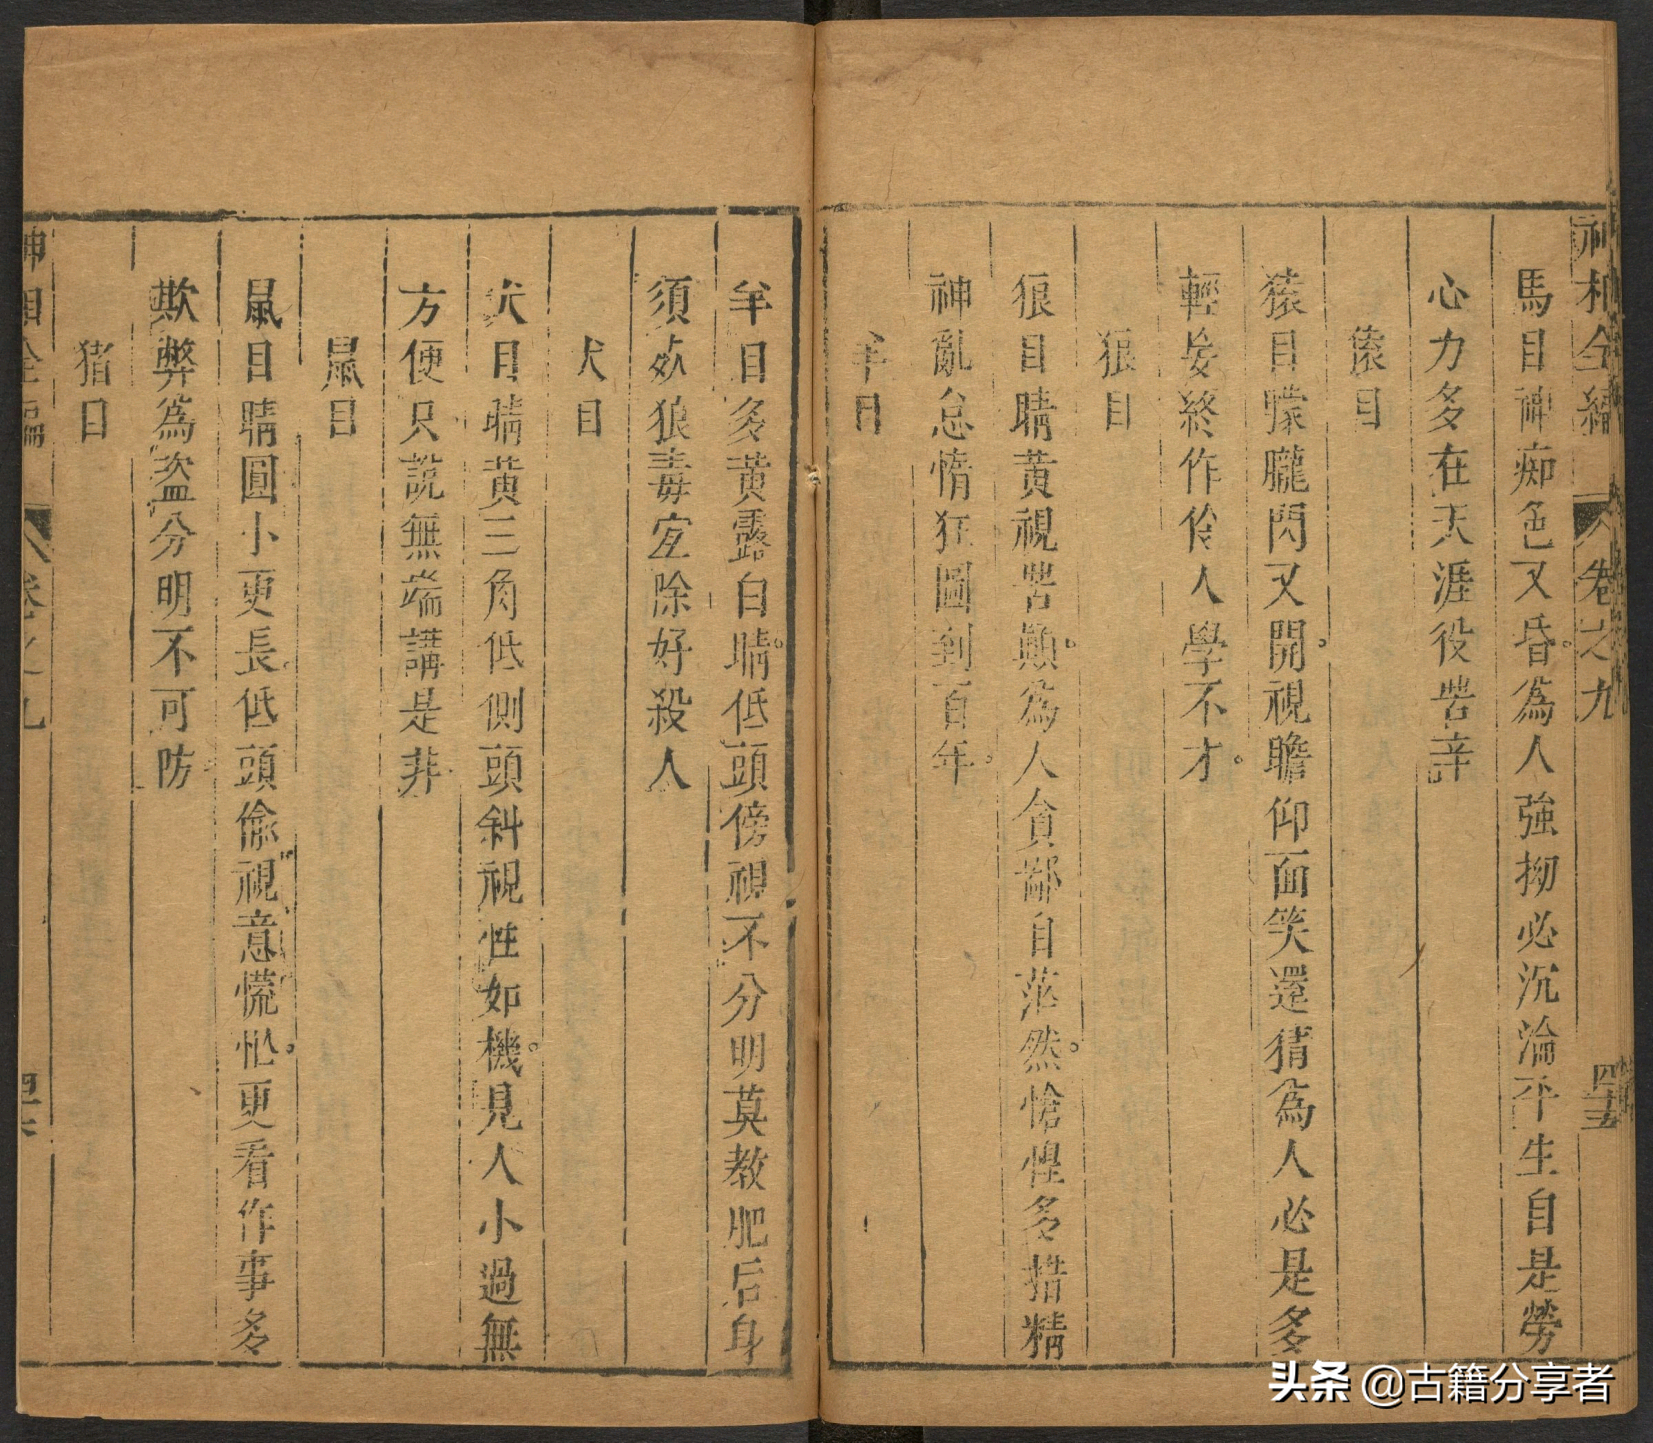 神相全編 卷之九 四十五
馬目神痴色又昏。為人強拗必沉淪平生自是勞
心力多在天涯役苦辛
猿目
猿目朦朧閃又開。視瞻仰面笑還猜為人必是多
輕妄終作伶人學不才。
狼目
狼目睛黄視苦顛。為人貪鄙自茫然。愴惶多措精
神亂怠惰狂圖到百年。
羊目
羊目多黄露白睛。低頭傍視不分明莫教肥后身
須死狼毒宜除好殺人
犬目
犬目睛黄三角低側頭斜視性如機。見人小過無
方便只說無端講是非
鼠目
鼠目睛圓小更長。低頭偷視意慌忙。更看作事多
欺弊為盗分明不可防
猪目
神相全編 卷之九 四十六
头条 @古籍分享者